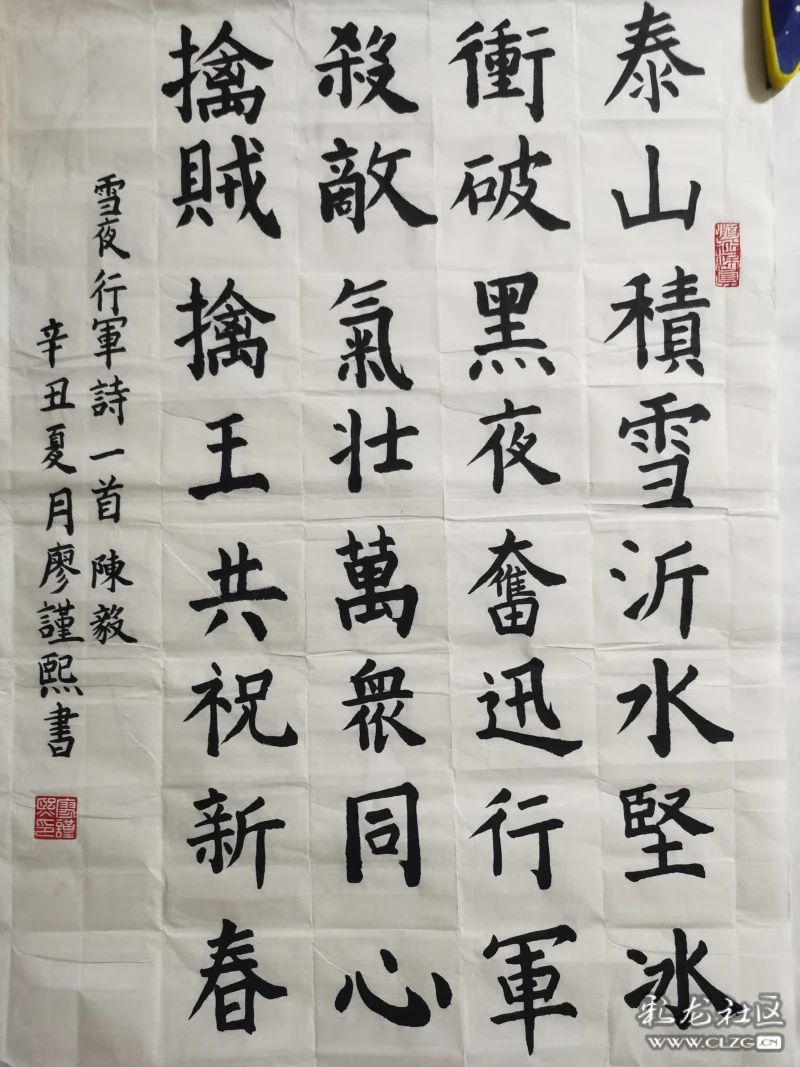 泰山積雪沂水堅冰
衝破黑夜奮迅行軍
殺敵氣壯萬衆同心
擒賊擒王共祝新春
雪夜行軍詩一首 陳毅
辛丑夏月廖謹熙書
彩龙社区
www.CLZG.CN